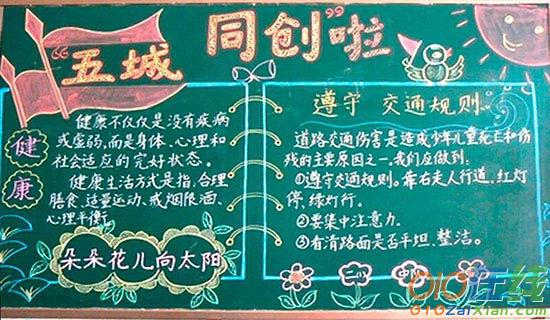 “五城 同创”啦
健康
健康不仅仅是没有疾病
或虚弱，而是身体、心理和
社会适应的完好状态。
健康生活方式是指，合理
膳食、适量运动、戒烟限酒、
心理平衡。
朵朵花儿向太阳
遵守 交通规则。
道路交通伤害是造成少年儿童死亡和伤
残的主要原因之一。我们应做到：
①遵守交通规则。靠右走人行道，红灯
停，绿灯行。
②要集中注意力。
③看清路面是否平坦、整洁。
二（
010在线
010zaixian.com